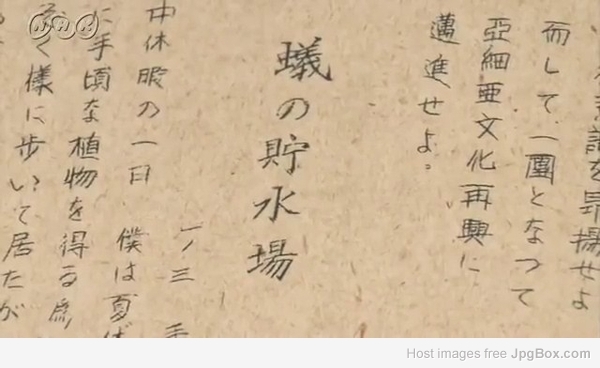 を昂揚せよ
而して一團となつて
亞細亜文化再興に
邁進せよ。
蟻の貯水場
一ノ三
中休暇の一日 僕は夏
に手頃な植物を得る為
く様に歩いて居たが
NHK
Host images free JpgBox.com